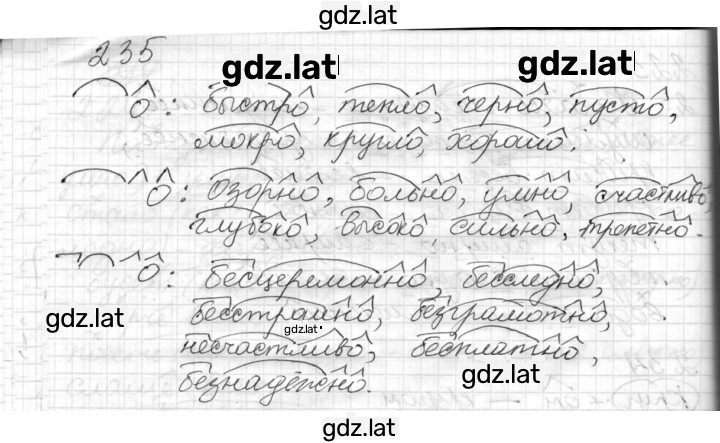 gdz.lat
235
gdz.lat gdz.lat
о: быстро, тепло, черно, пусто,
мокро, кругло, хорошо.
о: озорно, больно, умно, счастливо,
глубоко, высоко сильно, трепетно.
о: бесцеремонно, бесследно,
gdz.lat бесстрашно, безграмотно,
gdz.lat
несчастливо, бесплатно,
gdz.lat
безнадёжно.
gdz.lat